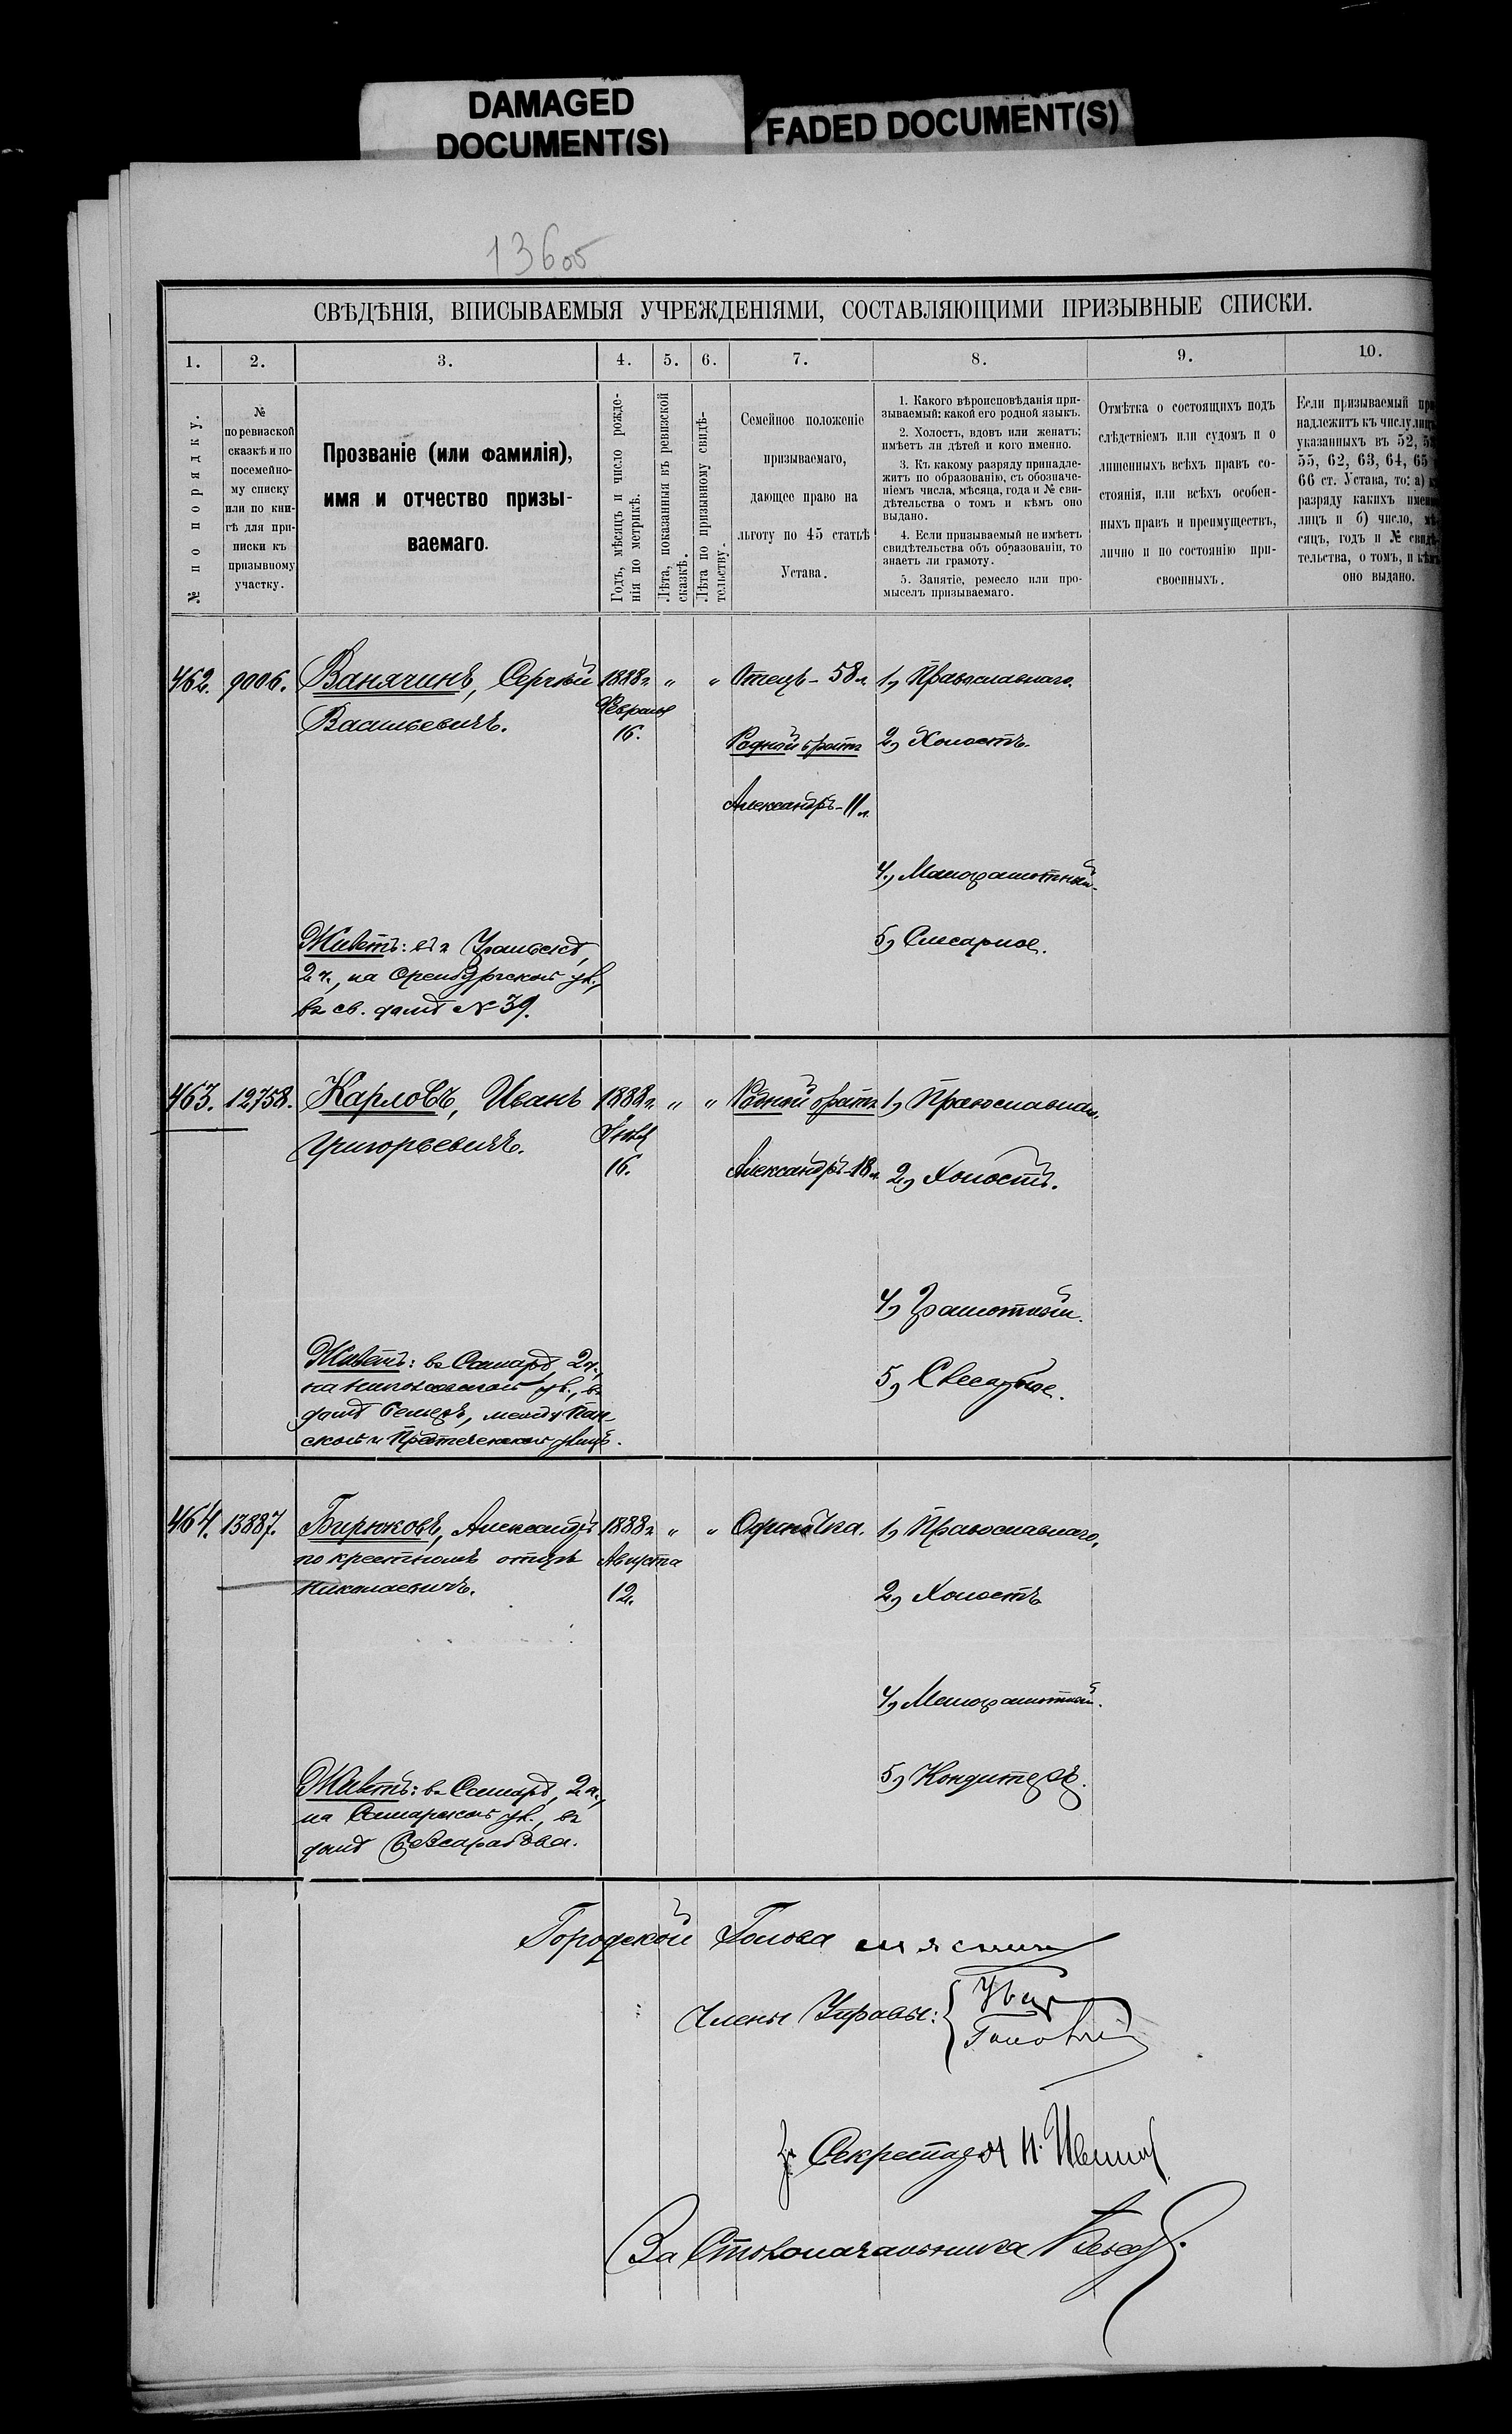 DAMAGED
DOCUMENT(S)
FADED DOCUMENT(S)
136об
СВѢДѢНІЯ, ВПИСЫВАЕМЫЯ УЧРЕЖДЕНІЯМИ, СОСТАВЛЯЮЩИМИ ПРИЗЫВНЫЕ СПИСКИ.
1. 2. 3. 4. 5. 6. 7. 8. 9. 10.
№ по порядку.
№
по ревизской
сказкѣ и по
посемейно-
му списку
или по кни-
гѣ для при-
писки къ
призывному
участку.
Прозваніе (или фамилія),
имя и отчество призы-
ваемаго.
Годъ, мѣсяцъ и число рожде-
нія по метрикѣ.
Лѣта, показанныя въ ревизской
сказкѣ.
Лѣта по призывному свидѣ-
тельству.
Семейное положеніе
призываемаго,
дающее право на
льготу по 45 статьѣ
Устава.
1. Какого вѣроисповѣданія при-
зываемый: какой его родной языкъ.
2. Холостъ, вдовъ или женатъ;
имѣетъ ли дѣтей и кого именно.
3. Къ какому разряду принадле-
житъ по образованію, съ обозначе-
ніемъ числа, мѣсяца, года и № сви-
дѣтельства о томъ и кѣмъ оно
выдано.
4. Если призываемый не имѣетъ
свидѣтельства объ образованіи, то
знаетъ ли грамоту.
5. Занятіе, ремесло или про-
мыселъ призываемаго.
Отмѣтка о состоящихъ подъ
слѣдствіемъ или судомъ и о
лишенныхъ всѣхъ правъ со-
стоянія, или всѣхъ особен-
ныхъ правъ и преимуществъ,
лично и по состоянію при-
своенныхъ.
Если призываемый
надлежитъ къ числу лицъ
указанныхъ въ 52,
55, 62, 63, 64, 65
66 ст. Устава, то: а)
разряду какихъ
лицъ и б) число, мѣ-
сяцъ, годъ и № свидѣ-
тельства, о томъ, и кѣмъ
оно выдано.
462. 9006. Ванячинъ, Сергѣй 1888г. " " Отецъ - 58л. 1, Православнаго.
Васильевичъ. Февраля
16.
Родной братъ 2, Холостъ.
Александръ - 11л.
4, Малограмотный.
5, Слесарное.
Живетъ: въ г. Уральскѣ,
2ч., на Оренбургской ул.,
въ св. домѣ № 39.
463. 12758. Карловъ, Иванъ 1888г. " " Родной братъ 1, Православнаго.
Григорьевичъ.
16.
Александръ - 18л. 2, Холостъ.
4, Грамотный.
5, Слесарное.
Живетъ: въ Самарѣ, 2ч.,
на ул., въ
домѣ между Пан-
ской и Предтеченской улицъ.
464. 13887. Бирюковъ, Александръ 1888г. " " Одиночка. 1, Православнаго.
по крестному отцу Августа
Николаевичъ. 12.
2, Холостъ
4, Малограмотный.
5, Кондитеръ.
Живетъ: въ Самарѣ, 2ч.,
на Самарской ул., въ
домѣ
Городской Голова
Члены Управы:
Секретаря
За Столоначальника